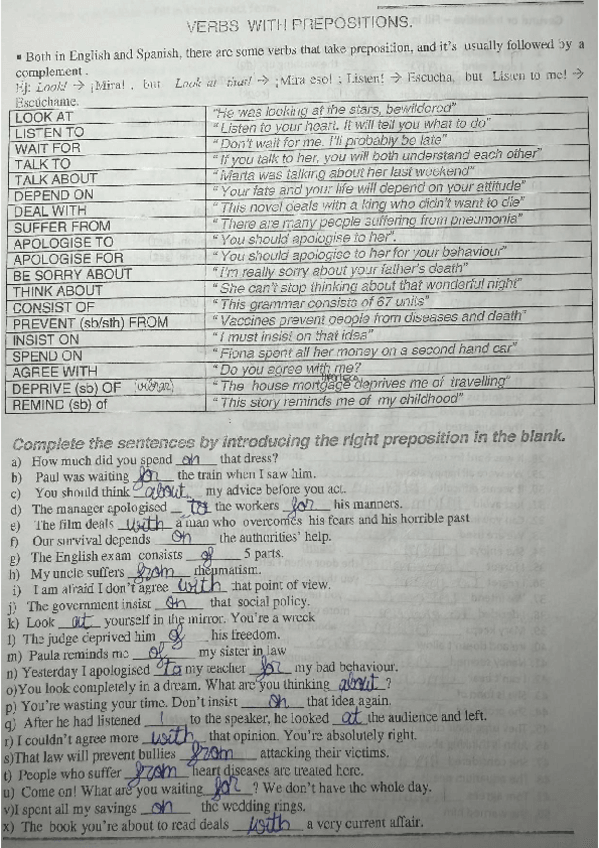 VERBS WITH PREPOSITIONS.
▪ Both in English and Spanish, there are some verbs that take preposition, and it's usually followed by a
complement .
Ej: Look! → ¡Mira! , but Look at that! → ¡Mira eso! ; Listen! → Escucha, but Listen to me! →
Escúchame.
LOOK AT "He was looking at the stars, bewildered"
LISTEN TO "Listen to your heart. It will tell you what to do"
WAIT FOR "Don't wait for me. I'll probably be late"
TALK TO "If you talk to her, you will both understand each other"
TALK ABOUT "Marta was talking about her last weekend"
DEPEND ON "Your fate and your life will depend on your attitude"
DEAL WITH "This novel deals with a king who didn't want to die"
SUFFER FROM "There are many people suffering from pneumonia"
APOLOGISE TO "You should apologise to her".
APOLOGISE FOR "You should apologise to her for your behaviour"
BE SORRY ABOUT "I'm really sorry about your father's death"
THINK ABOUT "She can't stop thinking about that wonderful night"
CONSIST OF "This grammar consists of 67 units"
PREVENT (sb/sth) FROM "Vaccines prevent people from diseases and death"
INSIST ON "I must insist on that idea"
SPEND ON "Fiona spent all her money on a second hand car"
AGREE WITH "Do you agree with me?
DEPRIVE (sb) OF "The house mortgage deprives me of travelling"
REMIND (sb) of "This story reminds me of my childhood"
Complete the sentences by introducing the right preposition in the blank.
a) How much did you spend on that dress?
b) Paul was waiting for the train when I saw him.
c) You should think about my advice before you act.
d) The manager apologised to the workers for his manners.
e) The film deals with a man who overcomes his fears and his horrible past
f) Our survival depends on the authorities' help.
g) The English exam consists of 5 parts.
h) My uncle suffers from rheumatism.
i) I am afraid I don't agree with that point of view.
j) The government insist on that social policy.
k) Look at yourself in the mirror. You're a wreck
l) The judge deprived him of his freedom.
m) Paula reminds me of my sister in law
n) Yesterday I apologised to my teacher for my bad behaviour.
o)You look completely in a dream. What are you thinking about?
p) You're wasting your time. Don't insist on that idea again.
q) After he had listened / to the speaker, he looked at the audience and left.
r) I couldn't agree more with that opinion. You're absolutely right.
s)That law will prevent bullies from attacking their victims.
t) People who suffer from heart diseases are treated here.
u) Come on! What are you waiting for? We don't have the whole day.
v)I spent all my savings on the wedding rings.
x) The book you're about to read deals with a very current affair.